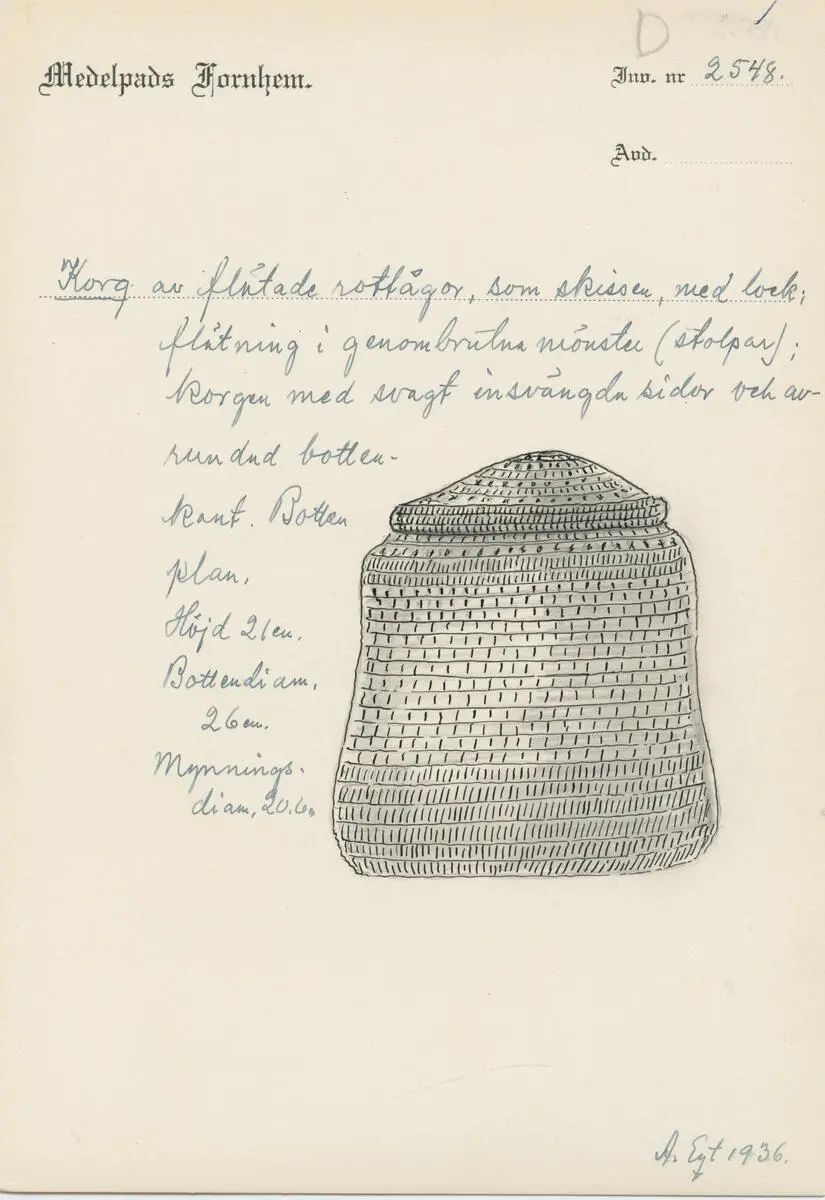 D
Medelpads Fornhem.
Inv. nr 2548.
Avd.
Korg av flätade rottågor, som skissen, med lock;
flätning i genombrutna mönster (stolpar);
korgen med svagt insvängda sidor och av-
rundad botten-
kant. Botten
plan.
Höjd 21 cm.
Bottendiam.
26 cm.
Mynnings-
diam. 20.6
A. Eyt 1936.